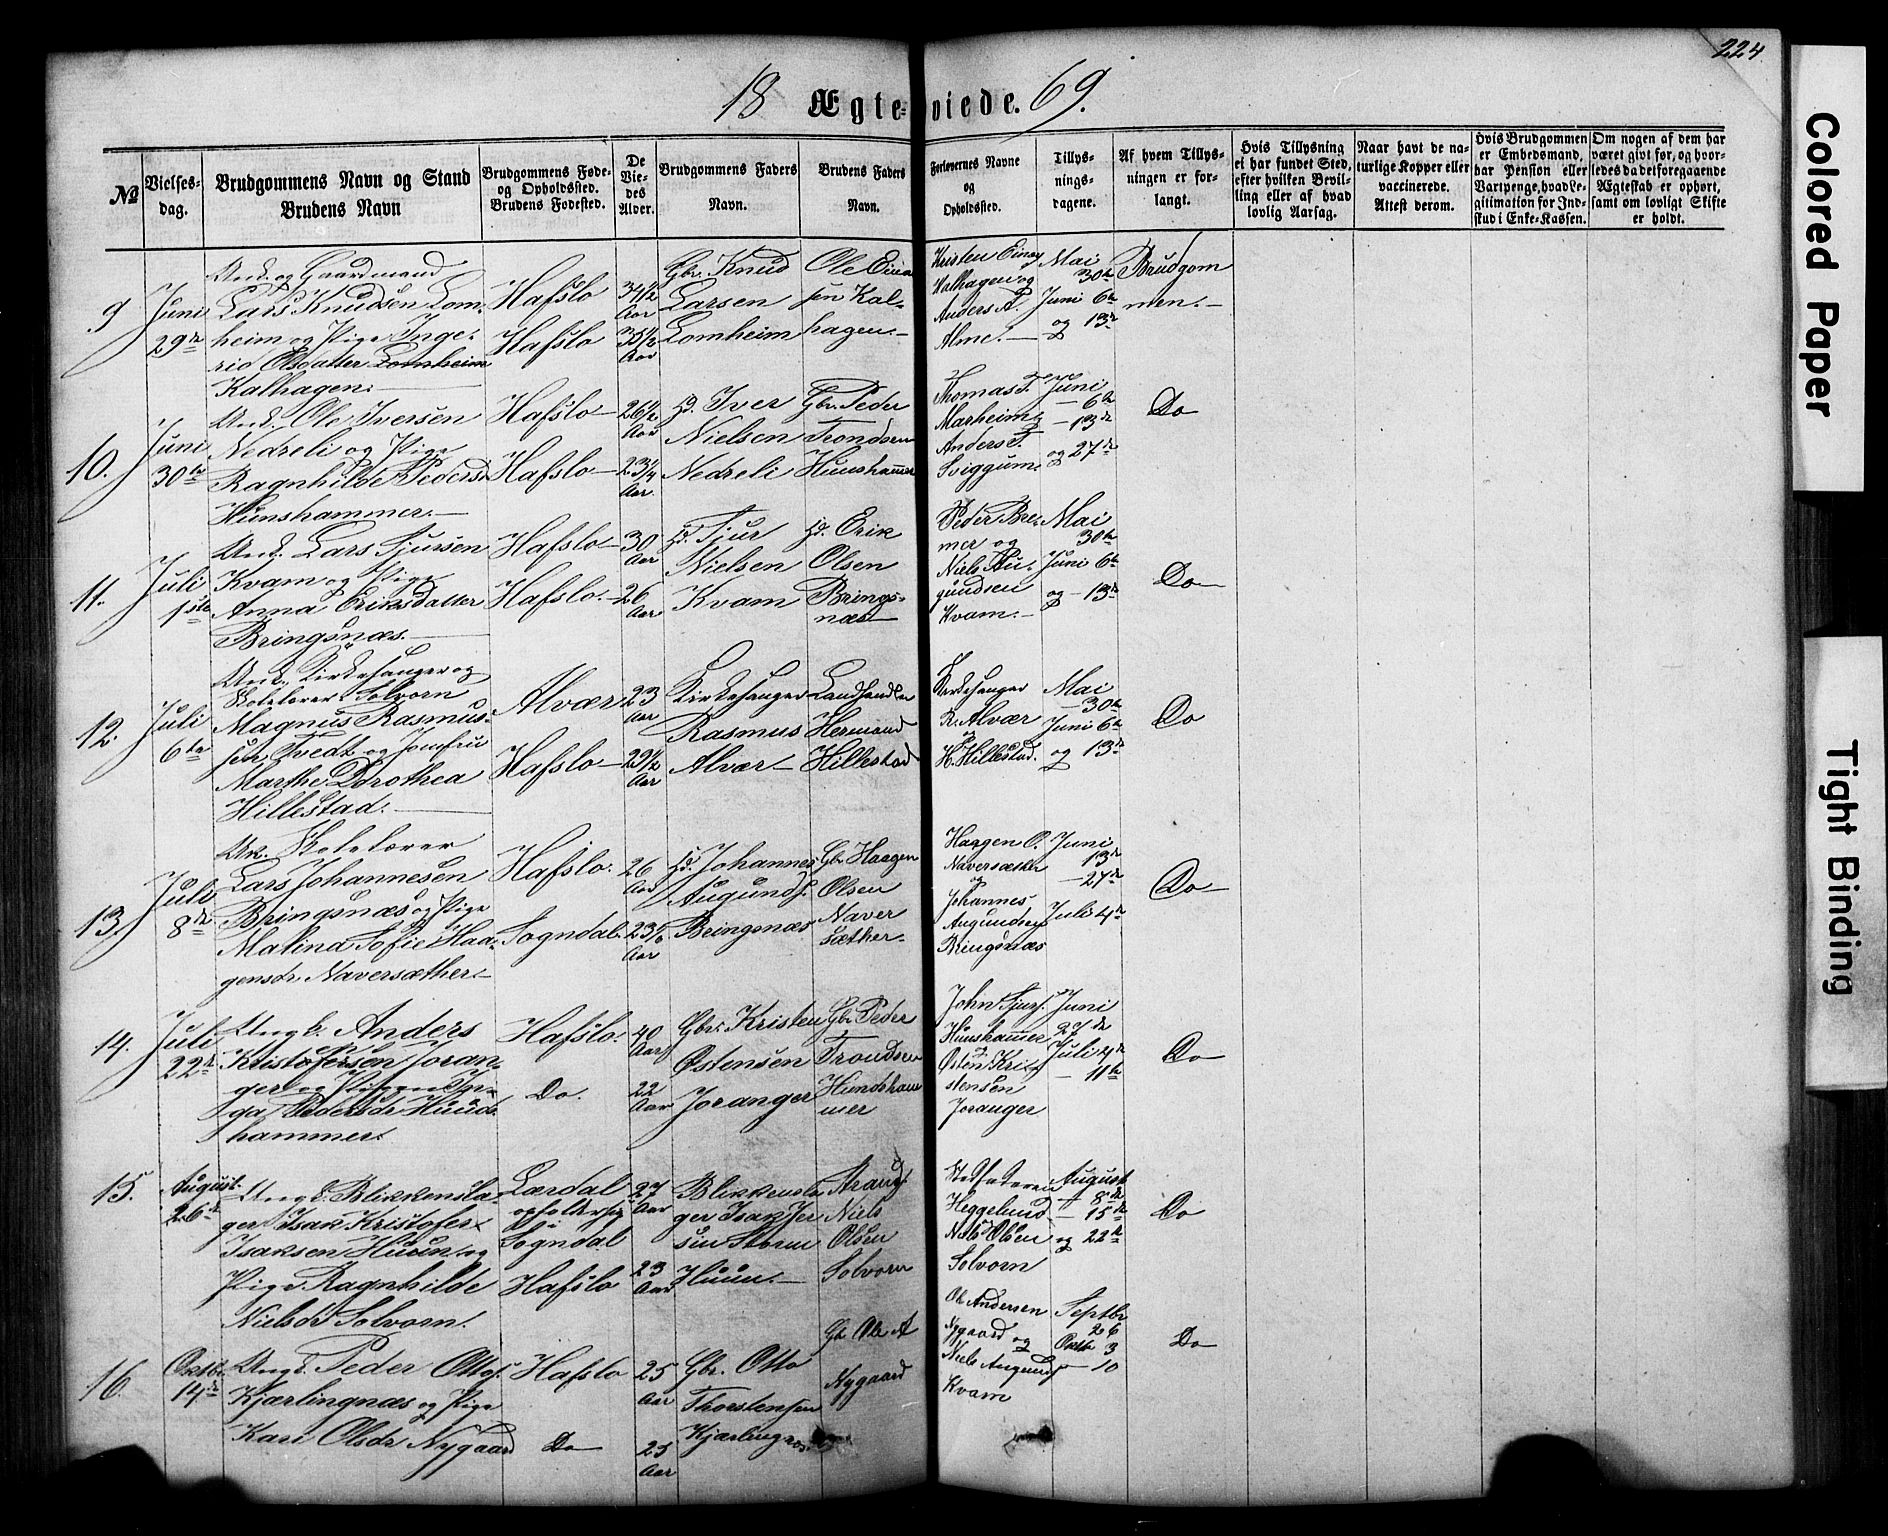 224
18 Ægte- viede. 69.
No
Vielses-
dag.
Brudgommens Navn og Stand
Brudens Navn
Brudgommens Føde-
og Opholdssted.
Brudens Fødested.
De
Vie-
des
Alder.
Brudgommens Faders
Navn.
Brudens Faders
Navn.
Forlovernes Navne
og
Opholdssted.
Tillys-
nings-
dagene.
Af hvem Tillys-
ningen er for-
langt.
Hvis Tillysning
ei har fundet Sted,
efter hvilken Bevil-
ling eller af hvad
lovlig Aarsag.
Naar havt de na-
turlige Kopper eller
vaccinerede.
Attest derom.
Hvis Brudgommen
er Embedsmand,
har Pension eller
Vartpenge, hvad Le-
gitimation for Ind-
skud i Enke-Kassen.
Om nogen af dem har
været givt før, og hvor-
ledes da det foregaaende
Ægteskab er ophørt,
samt om lovligt Skifte
er holdt.
9
Juni
29de
Ung. og Gaardmand
Lars Knudsen Lom-
heim og Pige Inge-
rid Olsdatter Lomheim
Kalhagen.
Hafslo
Hafslo
34½
Aar
Aar
Gbr. Knud
Larsen
Lomheim
Ole Eina
sen Kal-
hagen.
Kristen Einas
Kalhagen og
Anders A.
Alme.
Mai
30te
Juni 6te
og 13de
Brudgom
men.
10.
Juni
30te
Ung. Ole Iversen
Nedreli og Pige
Ragnhilde Pedersd
Hunshammer.
Hafslo
Hafslo
26½
Aar
23¼
Aar.
Hd. Iver
Nielsen
Nedreli
Gbr. Peder
Trondsen
Hunshammer
Thomas T.
Marheim
Anders T.
Sviggum.
Juni
6te
13de
og 27de
Do
11.
Juli
1ste
Ung. Lars Sjursen
Kvam og Pige
Anna Eriksdatter
Bringsnæs.
Hafslo
Hafslo.
30
Aar
26
Aar
Hd. Sjur
Nielsen
Kvam
Hd. Erik
Olsen
Brings-
næs
Peder Bre-
mer og
Niels Au-
gundsen
Kvam.
Mai
30te
Juni 6te
og 13de
Do
12.
Juli
6te
Ung. Kirkesanger og
Skolelærer Solvorn
Magnus Rasmus-
sen Tvedt og Jomfru
Marthe Dorothea
Hillestad.
Alvær
Hafslo
23
Aar
29½
Aar
Kirkesanger
Rasmus
Alvær
Landhandler
Hermund
Hillestad
Kirkesanger
R. Alvær
og
H. Hillestad.
Mai
30te
Juni 6te
og 13de
Do
13.
Juli
8de
Uk. Skolelærer
Lars Johannesen
Bringsnæs og Pige
Malina Sofie Haa-
gensdr Naversæther.
Hafslo.
Sogndal.
26
Aar
Aar
Hd. Johannes
Augunds.
Bringsnæs
Gbr. Haagen
Olsen
Naver
sæther.
Haagen O.
Naversæther
og
Johannes
Augundsen
Bringsnæs
Juni
13de
27de
Juli 4de
Do
14.
Juli
22de
Ungk. Anders
Kristofersen Joran-
ger og Pigen In-
ga Pedersdr Hunds
hammer.
Hafslo.
Do.
40
Aar
22
Aar
Gbr. Kristen
Østensen
Joranger
Gbr. Peder
Trondsen
Hundsham
mer
John Sjurs.
Hunshammer
og
Østen Kri-
stensen
Joranger
Juni
27de
Juli 4de
11te
Do
15.
August
26de
Ungk. Blikkensla-
ger Isak Kristofer
Isaksen Huun og
Pige Ragnhilde
Nielsdr Solvorn.
Lærdal
opholder sig
Sogndal
Hafslo
27
Aar
23
Aar
Blikkensla
ger Isak Jer
sin Storm
Huun.
Strand
Niels
Olsen
Solvorn
Heggelund
Niels Olsen
Solvorn
August
8de
15de
og 22de
Do
16.
Oktbr.
14de
Ungk. Peder Ottos.
Kjærlingnæs og Pige
Kari Olsdr Nygaard
Hafslo
Do
25
Aar
25
Aar
Gbr. Otto
Thorstensen
Kjærlingnæs
Gbr Ole A
Nygaard
Ole Andersen
Nygaard og
Niels Augunds
Kvam
Septbr
26
Oktb 3
10
Do
Colored Paper
Tight Binding